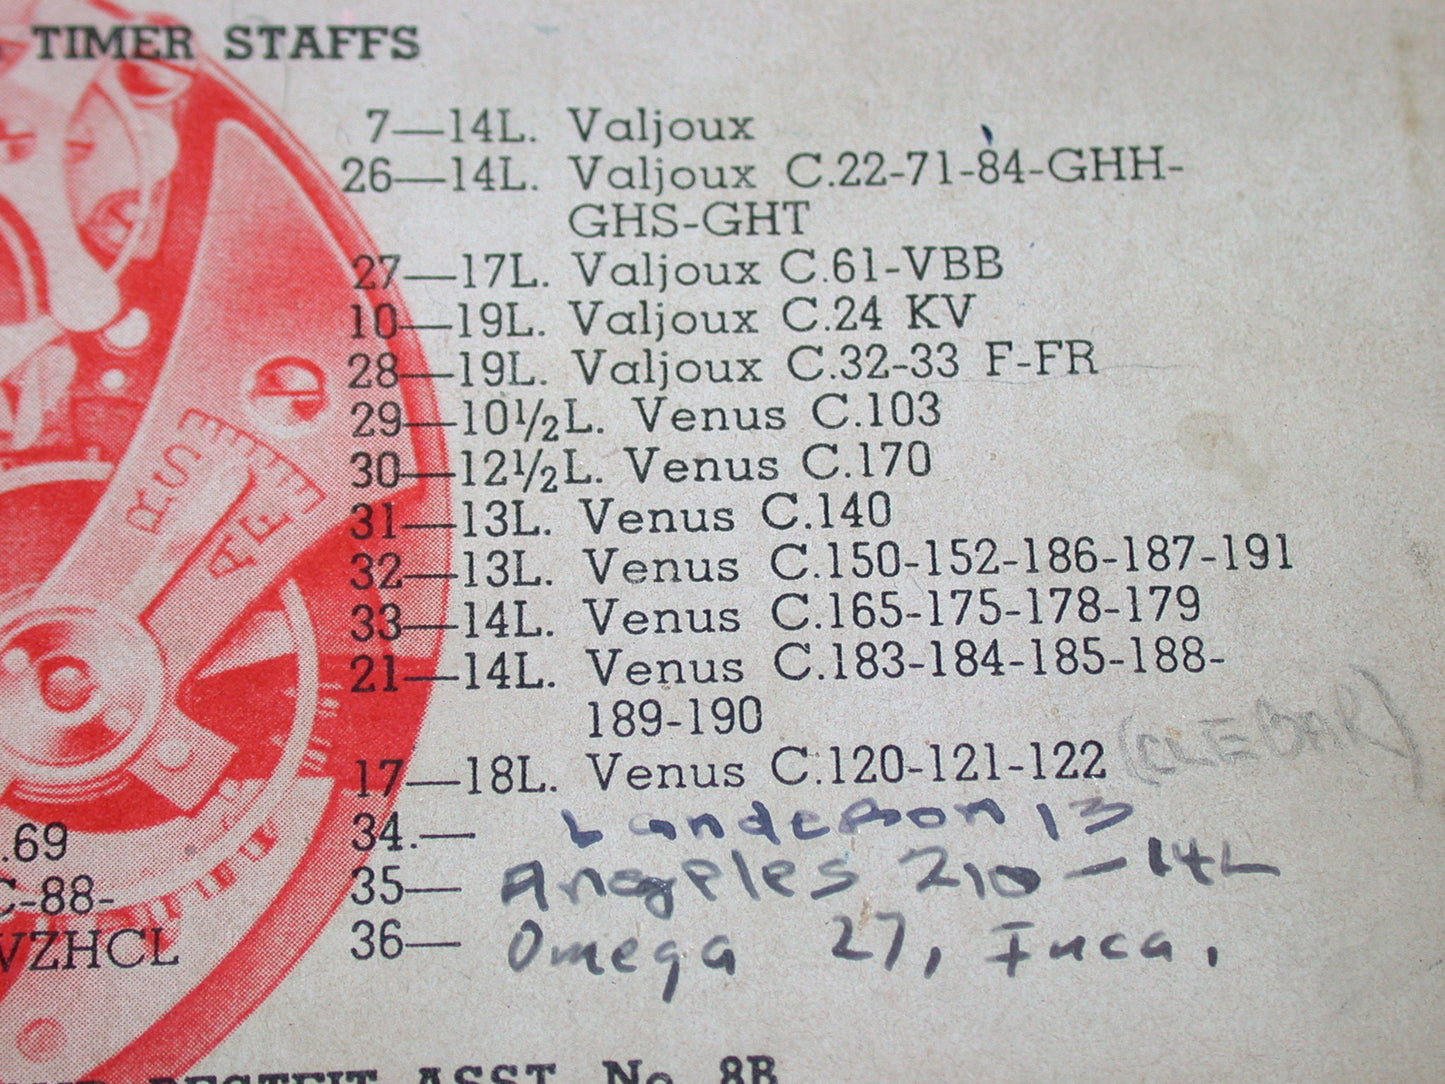 TIMER STAFFS
7—14L. Valjoux
26—14L. Valjoux C.22-71-84-GHH-
GHS-GHT
27—17L. Valjoux C.61-VBB
10—19L. Valjoux C.24 KV
28—19L. Valjoux C.32-33 F-FR
29—10½L. Venus C.103
30—12½L. Venus C.170
31—13L. Venus C.140
32—13L. Venus C.150-152-186-187-191
33—14L. Venus C.165-175-178-179
21—14L. Venus C.183-184-185-188-
189-190
17—18L. Venus C.120-121-122 (CLEBAR)
34.— Landeron 13
35— Angeles 210-14L
36— Omega 27,
.69
C-88-
VZHCL
ASST. No. 8B
D
RS
AF